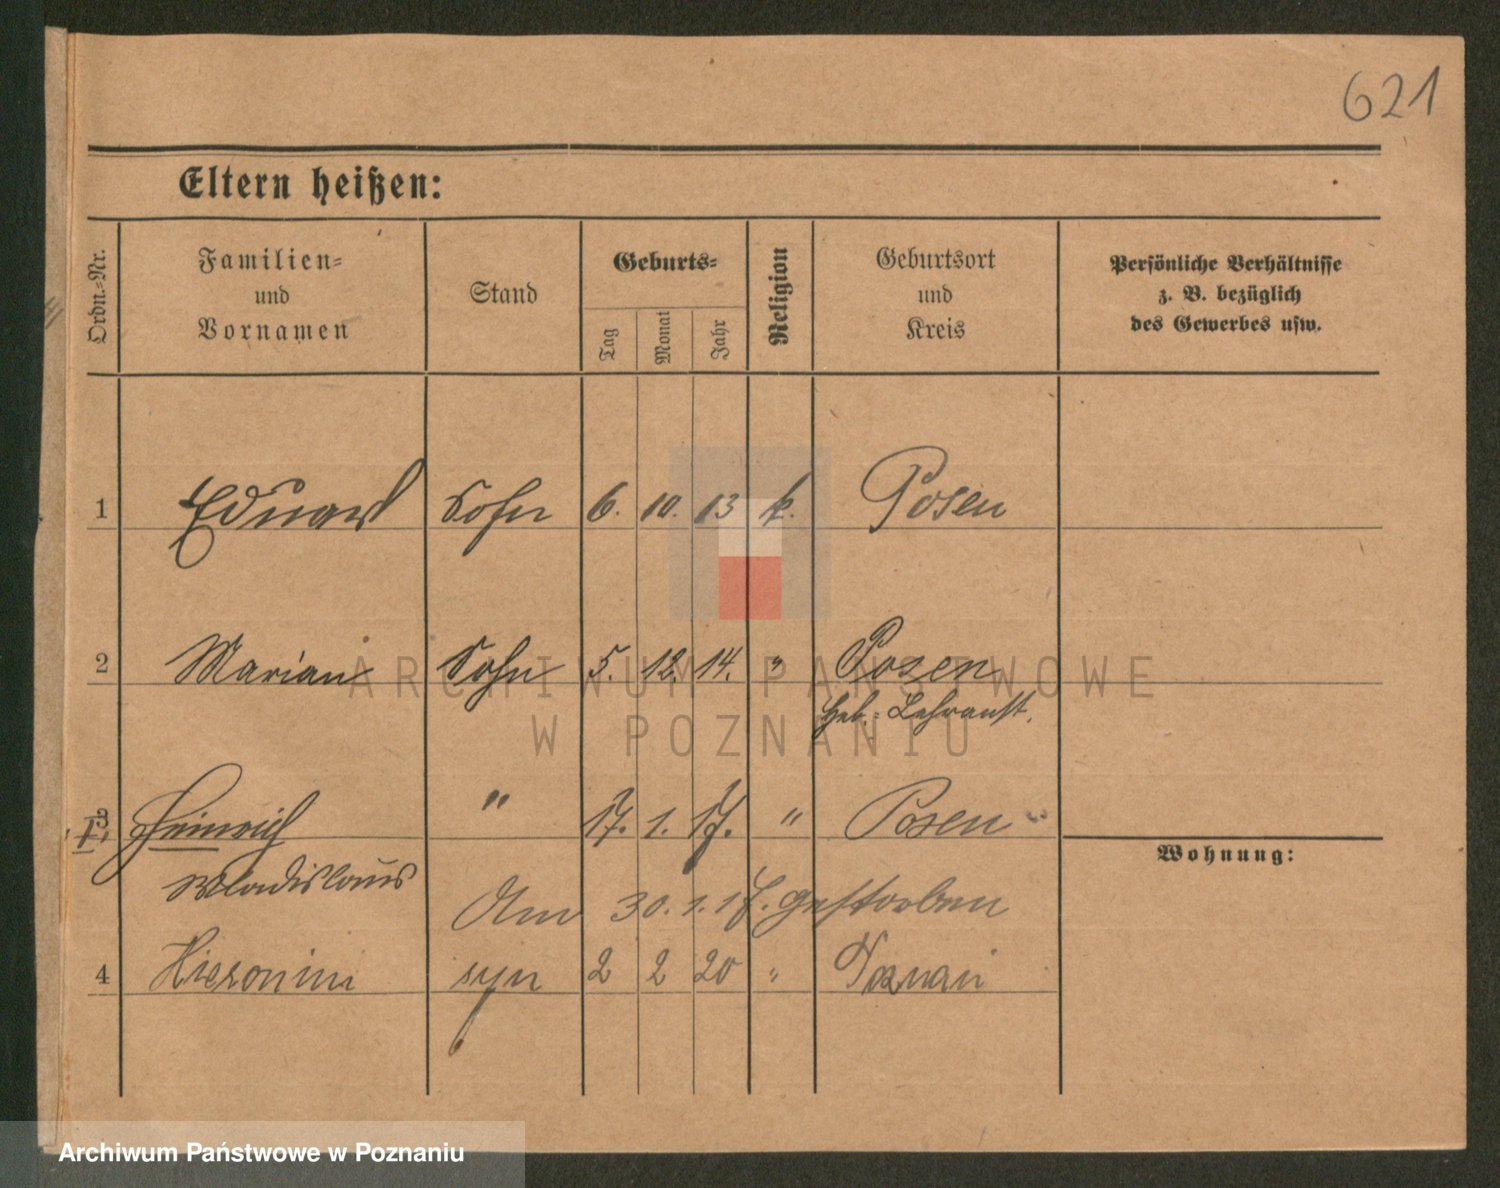 621
Eltern heißen:
Ordn.-Nr.
Familien- und Vornamen
Stand
Geburts-
Tag
Monat
Jahr
Religion
Geburtsort und Kreis
Persönliche Verhältnisse
z. B. bezüglich
des Gewerbes usw.
1 Eduard Sohn 6. 10. 13 k. Posen
2 Marian Sohn 5. 12. 14. " Posen
Heb.-Lehranst.
3 Heinrich " 17. 1. 17. " Posen
Wohnung:
Wladislaus
Am 30. 1. 17. gestorben
4 Hieronim syn 2 2 20 " Poznań
ARCHIWUM PAŃSTWOWE
W POZNANIU
Archiwum Państwowe w Poznaniu